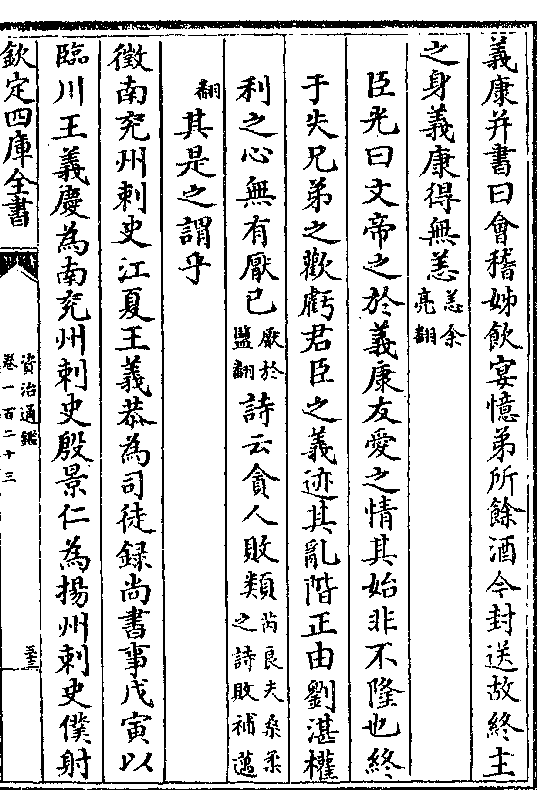 義康并書曰會稽姊飲宴憶弟所餘酒今封送故終主
之身義康得無恙恙余亮翻
臣光曰文帝之於義康友愛之情其始非不隆也終
于失兄弟之歡虧君臣之義迹其亂階正由劉湛權
利之心無有厭已厭於鹽翻詩云貪人敗類芮良夫桑柔之詩敗補邁
翻其是之謂乎
徵南兖州刺史江夏王義恭為司徒録尚書事戊寅以
臨川王義慶為南兖州刺史殷景仁為揚州刺史僕射
欽定四庫全書
資治通鑑
卷一百二十三